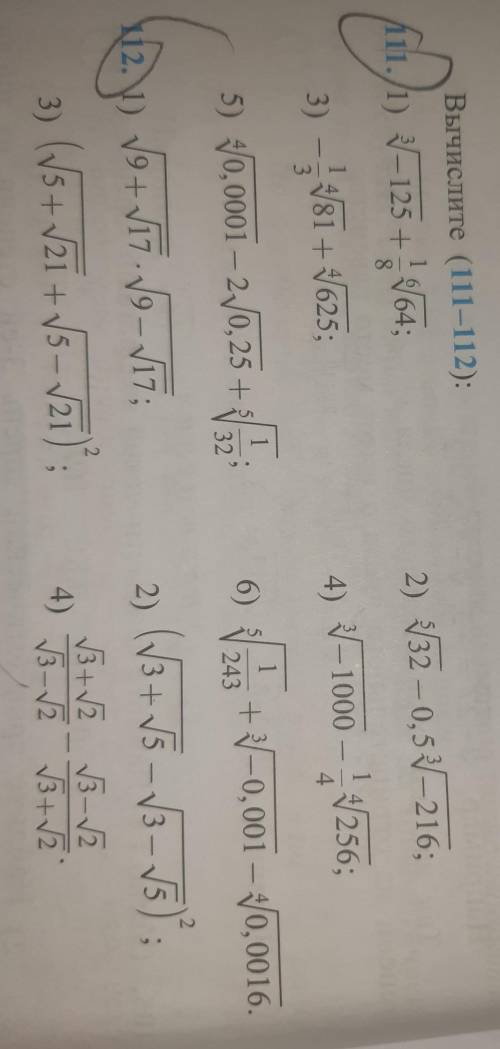 Вычислите (111–112):
111. 1) ∛(−125) + 1/8 ⁶√64; 2) ⁵√32 − 0,5∛(−216);
3) −1/3 ⁴√81 + ⁴√625; 4) ∛(−1000) − 1/4 ⁴√256;
5) ⁴√(0,0001) − 2√(0,25) + ⁵√(1/32); 6) ⁵√(1/243) + ∛(−0,001) − ⁴√(0,0016).
112. 1) √(9 + √17) · √(9 − √17); 2) (√(3 + √5) − √(3 − √5))²;
3) (√(5 + √21) + √(5 − √21))²; 4) (√3 + √2)/(√3 − √2) − (√3 − √2)/(√3 + √2).